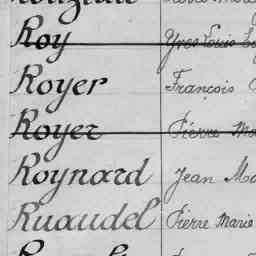 Roy Yves Louis
Royer François
Royer Pierre
Roynard Jean
Ruaudel Pierre Marie